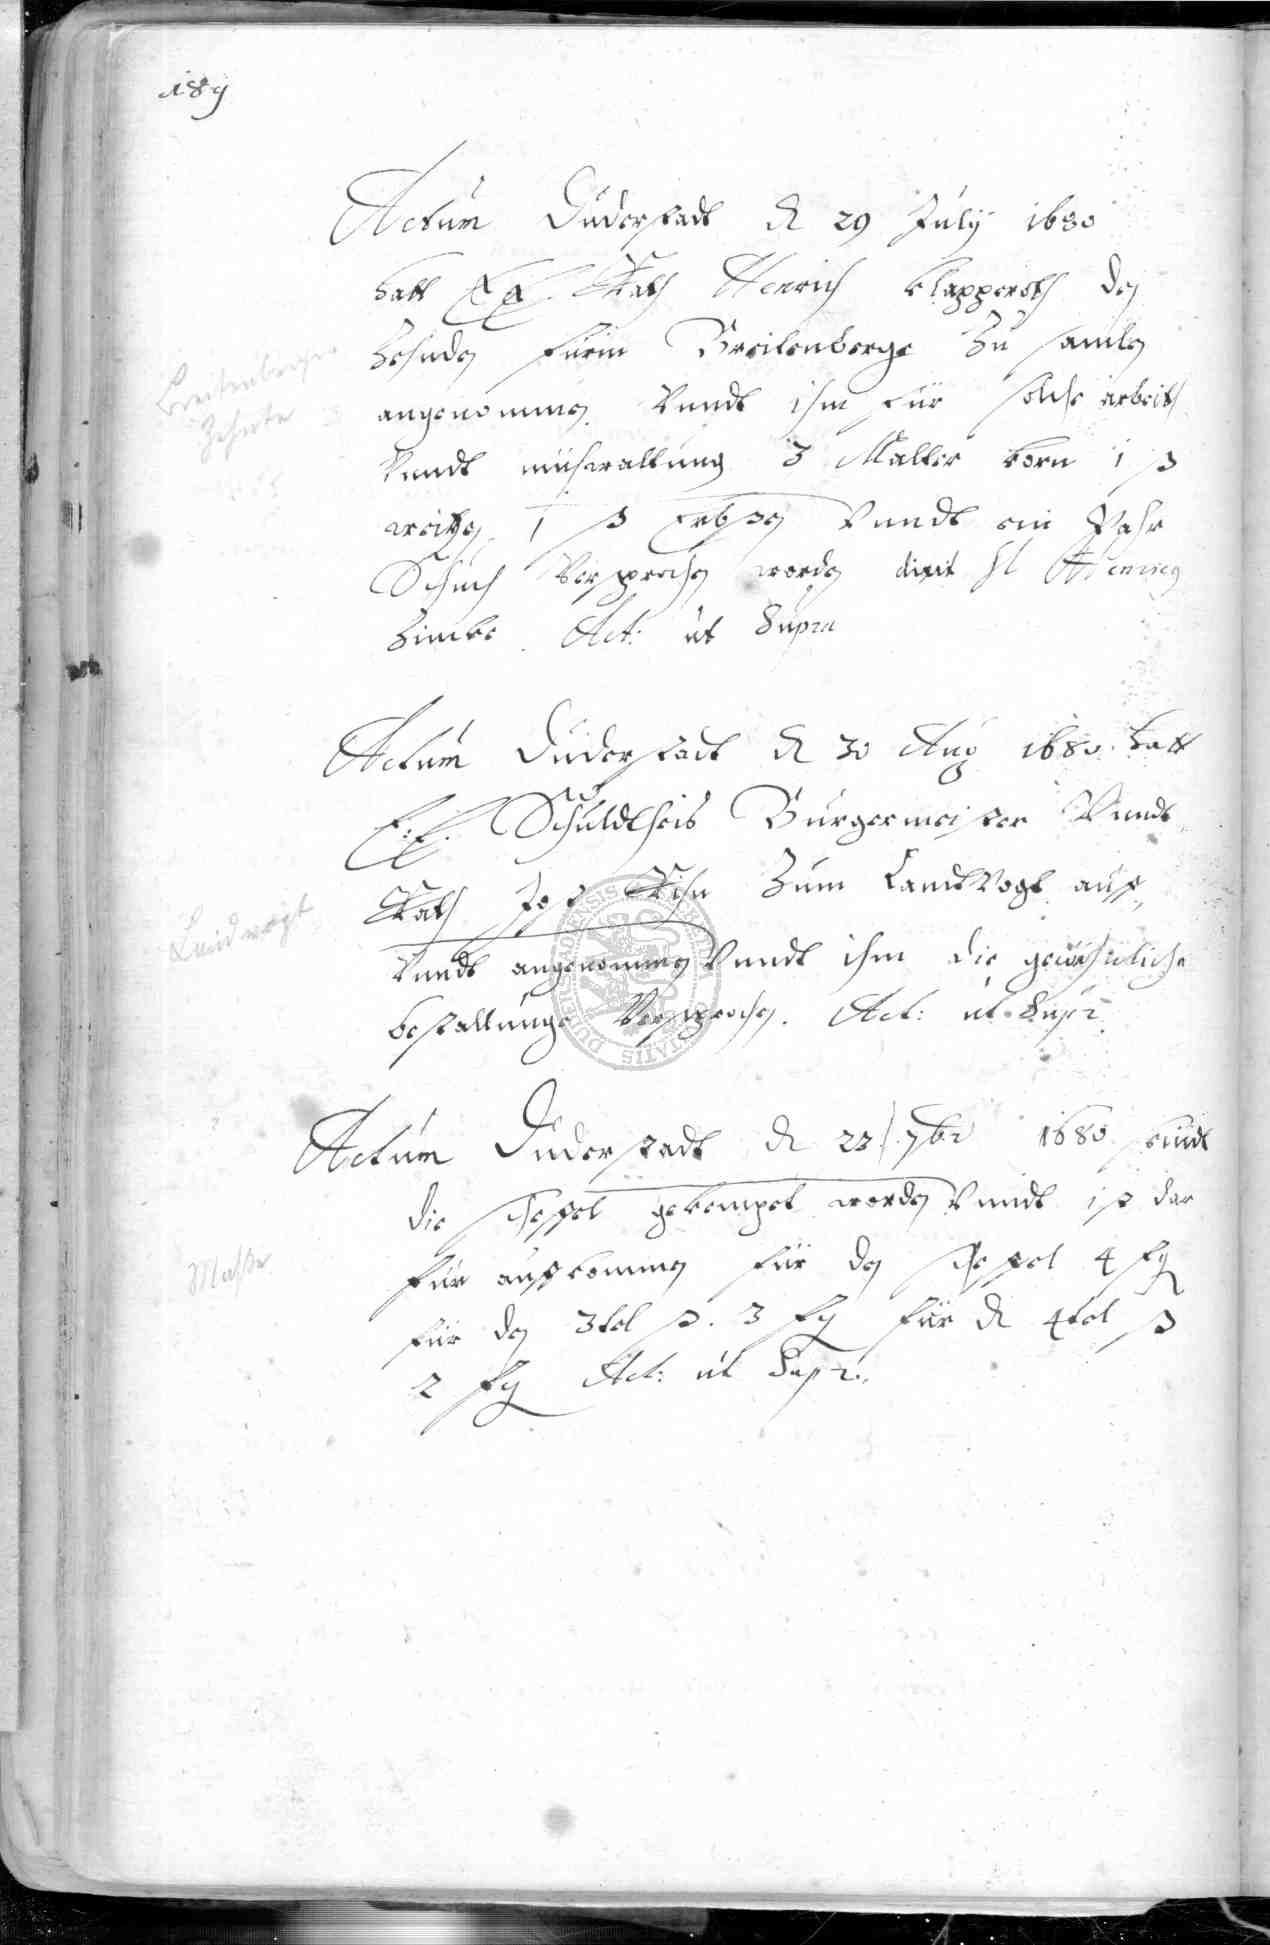 189
Actum Duderstadt d 29 July 1680
hatt E E Rath Henrich Klapperoth den
Zehnden fürm Breitenberge zu samlen
angenommen Vundt ihm für solche arbeith
Vundt mühwaltung 3 Malter Korn 1 ß
weitzen 1 ß Erbßen Vundt ein Pahr
Schuch Versprochen worden dixit H Henricg
Zimbe. Act: ut Supra
Breitenberger
Zehnte
Actum Duderstadt d 30 Aug 1680. hatt
E: E. Schuldtheis Bürgermeister Vundt
Rath Zum LandtVogt auff
Vundt angenommen Vundt ihm die gewöhnliche
bestallunge Versprochen. Act: ut Supr.
Landvogt
Actum Duderstadt d 23 7br 1680 seindt
die scheffel gekempet worden Vundt ist dar
für auffkommen für den scheffel 4 fg
für den 3tel ß. 3 fg für d 4tel ß
2 fg Act: ut Supr.
Maße
SIGILLUM CIVITATIS DUDERSTADENSIS